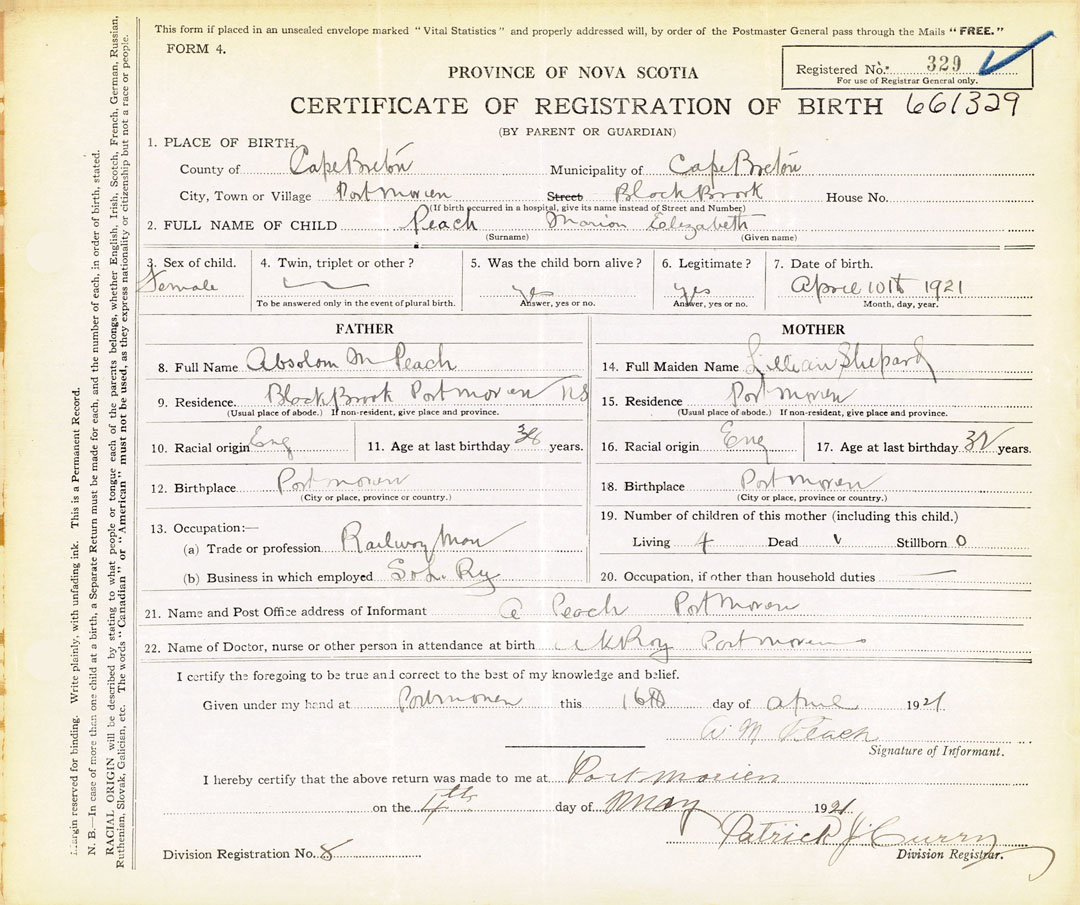 This form if placed in an unsealed envelope marked "Vital Statistics" and properly addressed will, by order of the Postmaster General pass through the Mails "FREE."
FORM 4.
Registered No. 329
For use of Registrar General only.
PROVINCE OF NOVA SCOTIA
CERTIFICATE OF REGISTRATION OF BIRTH 661329
(BY PARENT OR GUARDIAN)
1. PLACE OF BIRTH
County of Cape Breton Municipality of Cape Breton
City, Town or Village Port Morien Street Black Brook House No.
(If birth occurred in a hospital, give its name instead of Street and Number)
2. FULL NAME OF CHILD Peach Marion Elizabeth
(Surname) (Given name)
3. Sex of child. 4. Twin, triplet or other? 5. Was the child born alive? 6. Legitimate? 7. Date of birth.
Female yes yes April 10th 1921
To be answered only in the event of plural birth. Answer, yes or no. Answer, yes or no. Month, day, year.
FATHER MOTHER
8. Full Name Absolom M Peach 14. Full Maiden Name Lillian Shepard
9. Residence. Black Brook Port Morien NS 15. Residence Port Morien
(Usual place of abode.) If non-resident, give place and province. (Usual place of abode.) If non-resident, give place and province.
10. Racial origin Eng 11. Age at last birthday 38 years. 16. Racial origin Eng 17. Age at last birthday years.
12. Birthplace Port Morien 18. Birthplace Port Morien
(City or place, province or country.) (City or place, province or country.)
13. Occupation:— 19. Number of children of this mother (including this child.)
(a) Trade or profession Railway Man Living 4 Dead Stillborn 0
(b) Business in which employed S & L Ry 20. Occupation, if other than household duties —
21. Name and Post Office address of Informant A Peach Port Morien
22. Name of Doctor, nurse or other person in attendance at birth Port Morien
I certify the foregoing to be true and correct to the best of my knowledge and belief.
Given under my hand at Port Morien this 16th day of April 1921.
A M Peach
Signature of Informant.
I hereby certify that the above return was made to me at Port Morien
on the day of May 1921
Patrick J Curry
Division Registration No. 8 Division Registrar.
Margin reserved for binding. Write plainly, with unfading ink. This is a Permanent Record.
N. B.—In case of more than one child at a birth, a Separate Return must be made for each, and the number of each, in order of birth, stated.
RACIAL ORIGIN will be described by stating to what people or tongue each of the parents belongs, whether English, Irish, Scotch, French, German, Russian,
Ruthenian, Slovak, Galician, etc. The words "Canadian" or "American" must not be used, as they express nationality or citizenship but not a race or people.